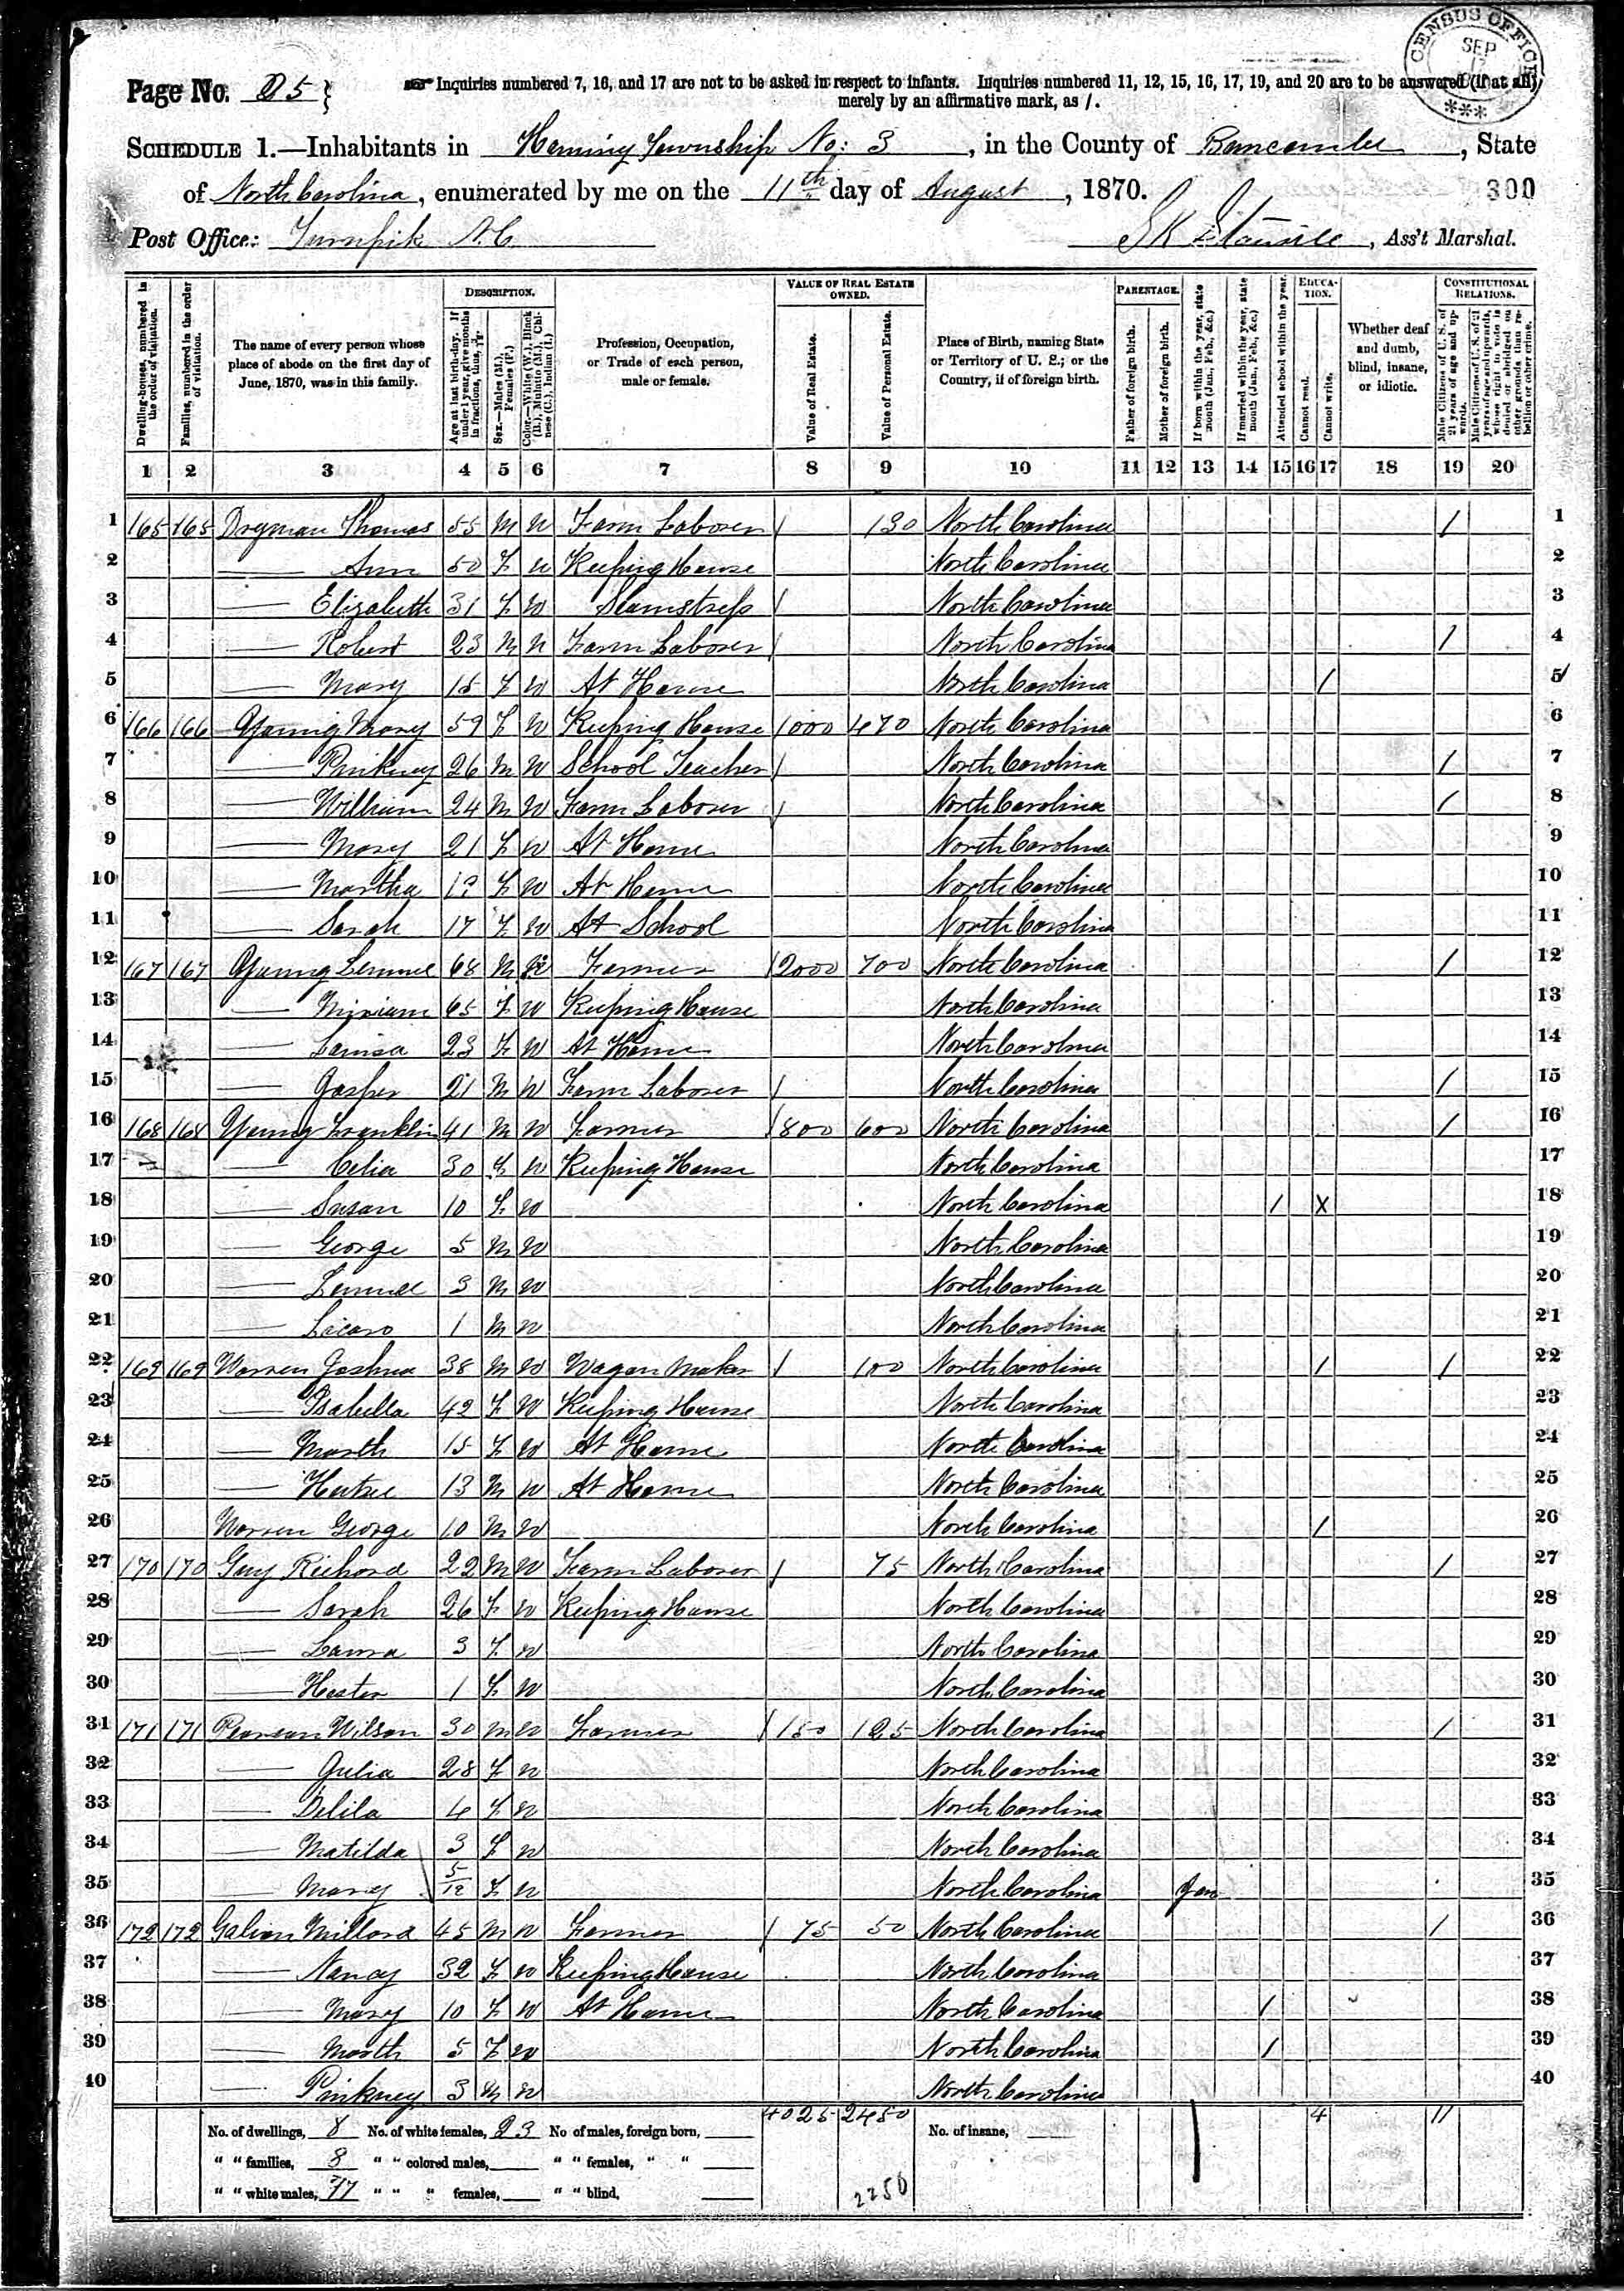 Page No. 25
Inquiries numbered 7, 16, and 17 are not to be asked in respect to infants. Inquiries numbered 11, 12, 15, 16, 17, 19, and 20 are to be answered (if at all)
merely by an affirmative mark, as /.
CENSUS OFFICE SEP ***
SCHEDULE 1.—Inhabitants in Township No: 3, in the County of Buncombe, State
of North Carolina, enumerated by me on the 11th day of August, 1870.
300
Post Office: Turnpik N.C.
S K, Ass't Marshal.
Dwelling-houses, numbered in the order of visitation.
Families, numbered in the order of visitation.
The name of every person whose place of abode on the first day of June, 1870, was in this family.
DESCRIPTION.
Age at last birth-day. If under 1 year, give months in fractions, thus,
Sex.—Males (M.), Females (F.)
Color.—White (W.), Black (B.), Mulatto (M.), Chinese (C.), Indian (I.)
Profession, Occupation, or Trade of each person, male or female.
VALUE OF REAL ESTATE OWNED.
Value of Real Estate.
Value of Personal Estate.
Place of Birth, naming State or Territory of U. S.; or the Country, if of foreign birth.
PARENTAGE.
Father of foreign birth.
Mother of foreign birth.
If born within the year, state month (Jan., Feb., &c.)
If married within the year, state month (Jan., Feb., &c.)
Attended school within the year.
EDUCATION.
Cannot read.
Cannot write.
Whether deaf and dumb, blind, insane, or idiotic.
CONSTITUTIONAL RELATIONS.
Male Citizens of U. S. of 21 years of age and upwards.
Male Citizens of U. S. of 21 years of age and upwards, whose right to vote is denied or abridged on other grounds than rebellion or other crime.
1 2 3 4 5 6 7 8 9 10 11 12 13 14 15 16 17 18 19 20
1 165 165 Dryman Thomas 55 M W Farm Laborer / 130 North Carolina / 1
2 — Ann 50 F W Keeping House North Carolina 2
3 — Elizabeth 31 F W Seamstress / North Carolina 3
4 — Robert 23 M W Farm Laborer / North Carolina / 4
5 — Mary 15 F W At Home North Carolina / 5
6 166 166 Young Mary 59 F W Keeping House /1000 470 North Carolina 6
7 — Pinkney 26 M W School Teacher / North Carolina / 7
8 — William 24 M W Farm Laborer / North Carolina / 8
9 — Mary 21 F W At Home North Carolina 9
10 — Martha 19 F W At Home North Carolina 10
11 — Sarah 17 F W At School North Carolina 11
12 167 167 Young Lemuel 68 M W Farmer /2000 700 North Carolina / 12
13 — Miriam 65 F W Keeping House North Carolina 13
14 — Louisa 23 F W At Home North Carolina 14
15 — Jasper 21 M W Farm Laborer / North Carolina / 15
16 168 168 Young Franklin 41 M W Farmer /800 600 North Carolina / 16
17 — Celia 30 F W Keeping House North Carolina 17
18 — Susan 10 F W North Carolina / X 18
19 — George 5 M W North Carolina 19
20 — Lemuel 3 M W North Carolina 20
21 — 1 M W North Carolina 21
22 169 169 Warren Joshua 38 M W Wagon Maker / 100 North Carolina / / 22
23 — Isabella 42 F W Keeping House North Carolina 23
24 — Marth 15 F W At Home North Carolina 24
25 — 13 M W At Home North Carolina 25
26 Warren George 10 M W North Carolina / 26
27 170 170 Guy Richard 22 M W Farm Laborer / 75 North Carolina / 27
28 — Sarah 26 F W Keeping House North Carolina 28
29 — Laura 3 F W North Carolina 29
30 — Hester 1 F W North Carolina 30
31 171 171 Pearson Wilson 30 M W Farmer /150 125 North Carolina / 31
32 — Julia 28 F W North Carolina 32
33 — Delila 4 F W North Carolina 33
34 — Matilda 3 F W North Carolina 34
35 — Mary 5/12 F W North Carolina Jan 35
36 172 172 Millard 45 M W Farmer / 75 50 North Carolina / 36
37 — Nancy 32 F W Keeping House North Carolina 37
38 — Mary 10 F W At Home North Carolina / 38
39 — Marth 5 F W North Carolina / 39
40 — Pinkney 3 M W North Carolina 40
4025 2450 4 11
No. of dwellings, 8 No. of white females, 23 No of males, foreign born, No. of insane,
" " families, 8 " " colored males, " " females, " "
" " white males, 17 " " " females, " " blind,
2250